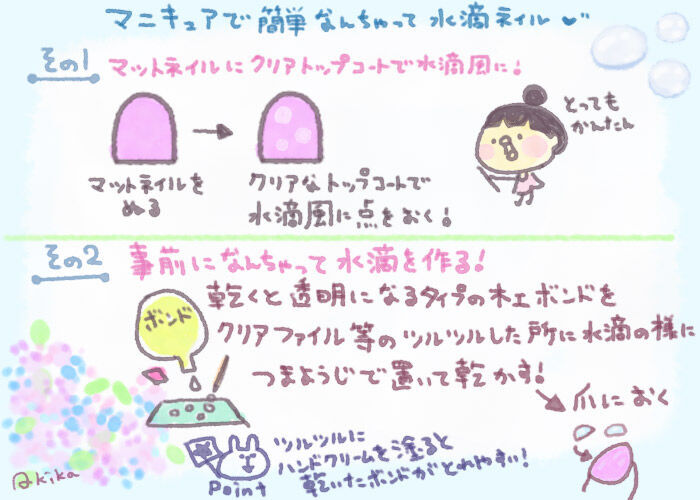 マニキュアで簡単なんちゃって水滴ネイル
その1 マットネイルにクリアトップコートで水滴風に!
とっても
かんたん
マットネイルを
ぬる
クリアなトップコートで
水滴風に点をおく!
その2 事前になんちゃって水滴を作る!
ボンド
乾くと透明になるタイプの木工ボンドを
クリアファイル等のツルツルした所に水滴の様に
つまようじで置いて乾かす!
爪におく
ツルツルに
ハンドクリームを塗ると
乾いたボンドがとれやすい!
Point
@kika